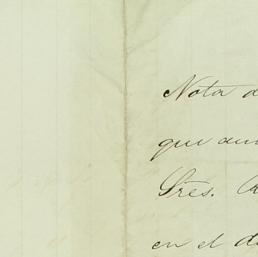 Nota d
que au
Sres. C
en el d